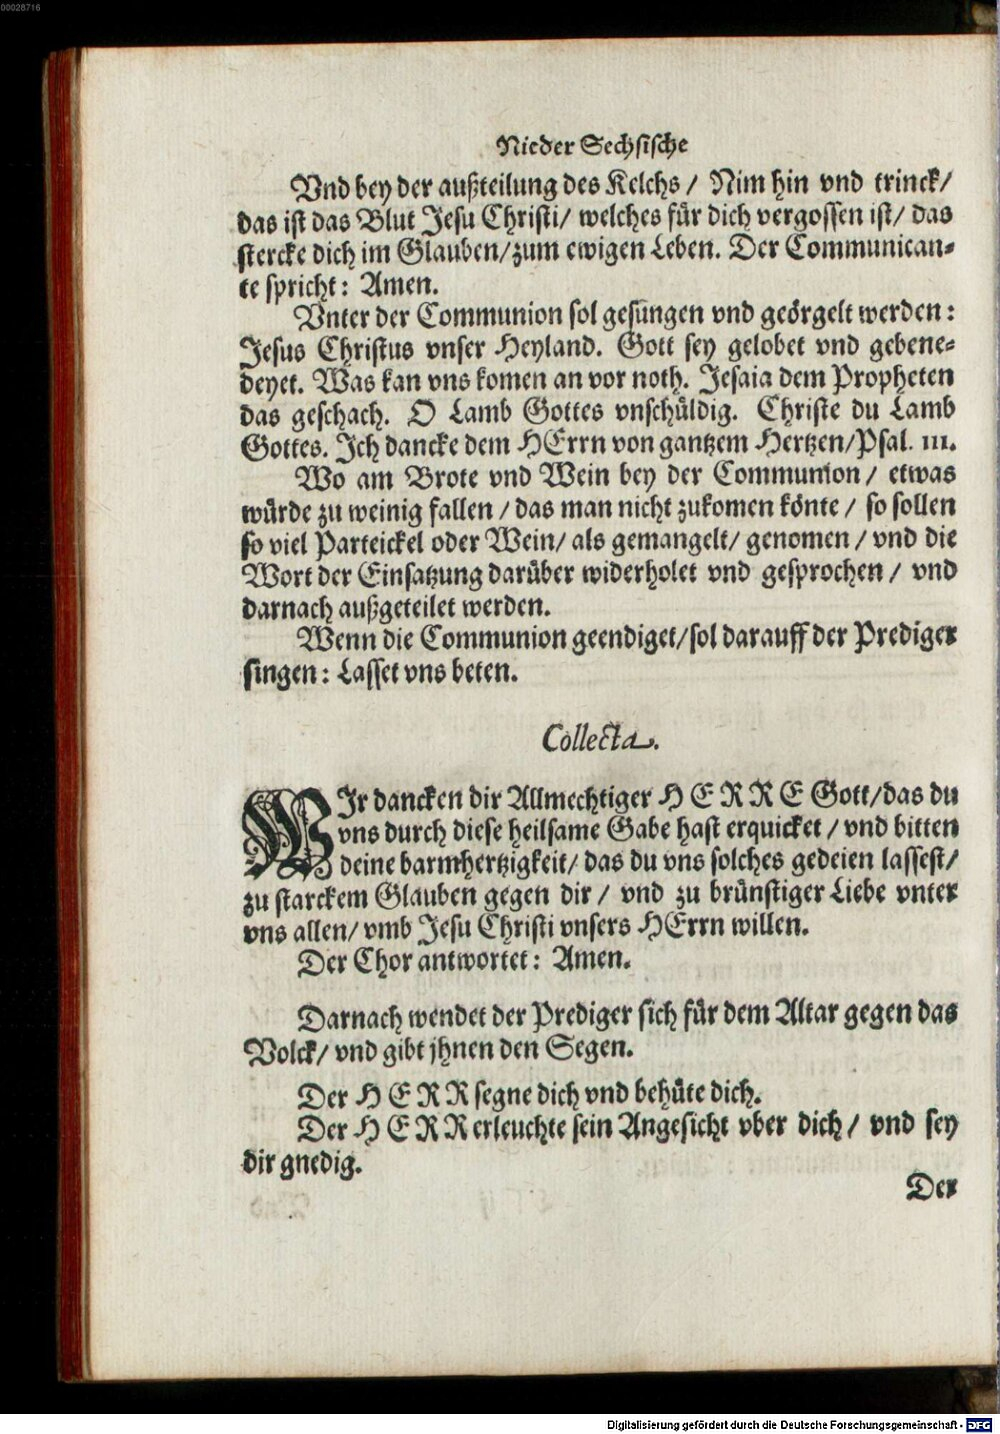 00028716
Nieder Sechsische
Vnd bey der außteilung des Kelchs / Nim hin vnd trinck/
das ist das Blut Jesu Christi/ welches für dich vergossen ist/ das
stercke dich im Glauben/zum ewigen Leben. Der Communican-
te spricht: Amen.
Vnter der Communion sol gesungen vnd georgelt werden:
Jesus Christus vnser Heyland. Gott sey gelobet vnd gebene-
deyet. Was kan vns komen an vor noth. Jesaia dem Propheten
das geschach. O Lamb Gottes vnschüldig. Christe du Lamb
Gottes. Ich dancke dem HErrn von gantzem Hertzen/Psal. 111.
Wo am Brote vnd Wein bey der Communion / etwas
würde zu weinig fallen / das man nicht zukomen könte / so sollen
so viel Parteickel oder Wein/ als gemangelt/ genomen / vnd die
Wort der Einsatzung darüber widerholet vnd gesprochen / vnd
darnach außgeteilet werden.
Wenn die Communion geendiget/sol darauff der Prediger
singen: Lasset vns beten.
Collecta.
WIr dancken dir Allmechtiger HERRE Gott/das du
vns durch diese heilsame Gabe hast erquicket / vnd bitten
deine barmhertzigkeit/ das du vns solches gedeien lassest/
zu starckem Glauben gegen dir / vnd zu brünstiger Liebe vnter
vns allen/ vmb Jesu Christi vnsers HErrn willen.
Der Chor antwortet: Amen.
Darnach wendet der Prediger sich für dem Altar gegen das
Volck/ vnd gibt jhnen den Segen.
Der HERR segne dich vnd behüte dich.
Der HERR erleuchte sein Angesicht vber dich / vnd sey
dir gnedig.
Der
Digitalisierung gefördert durch die Deutsche Forschungsgemeinschaft - DFG